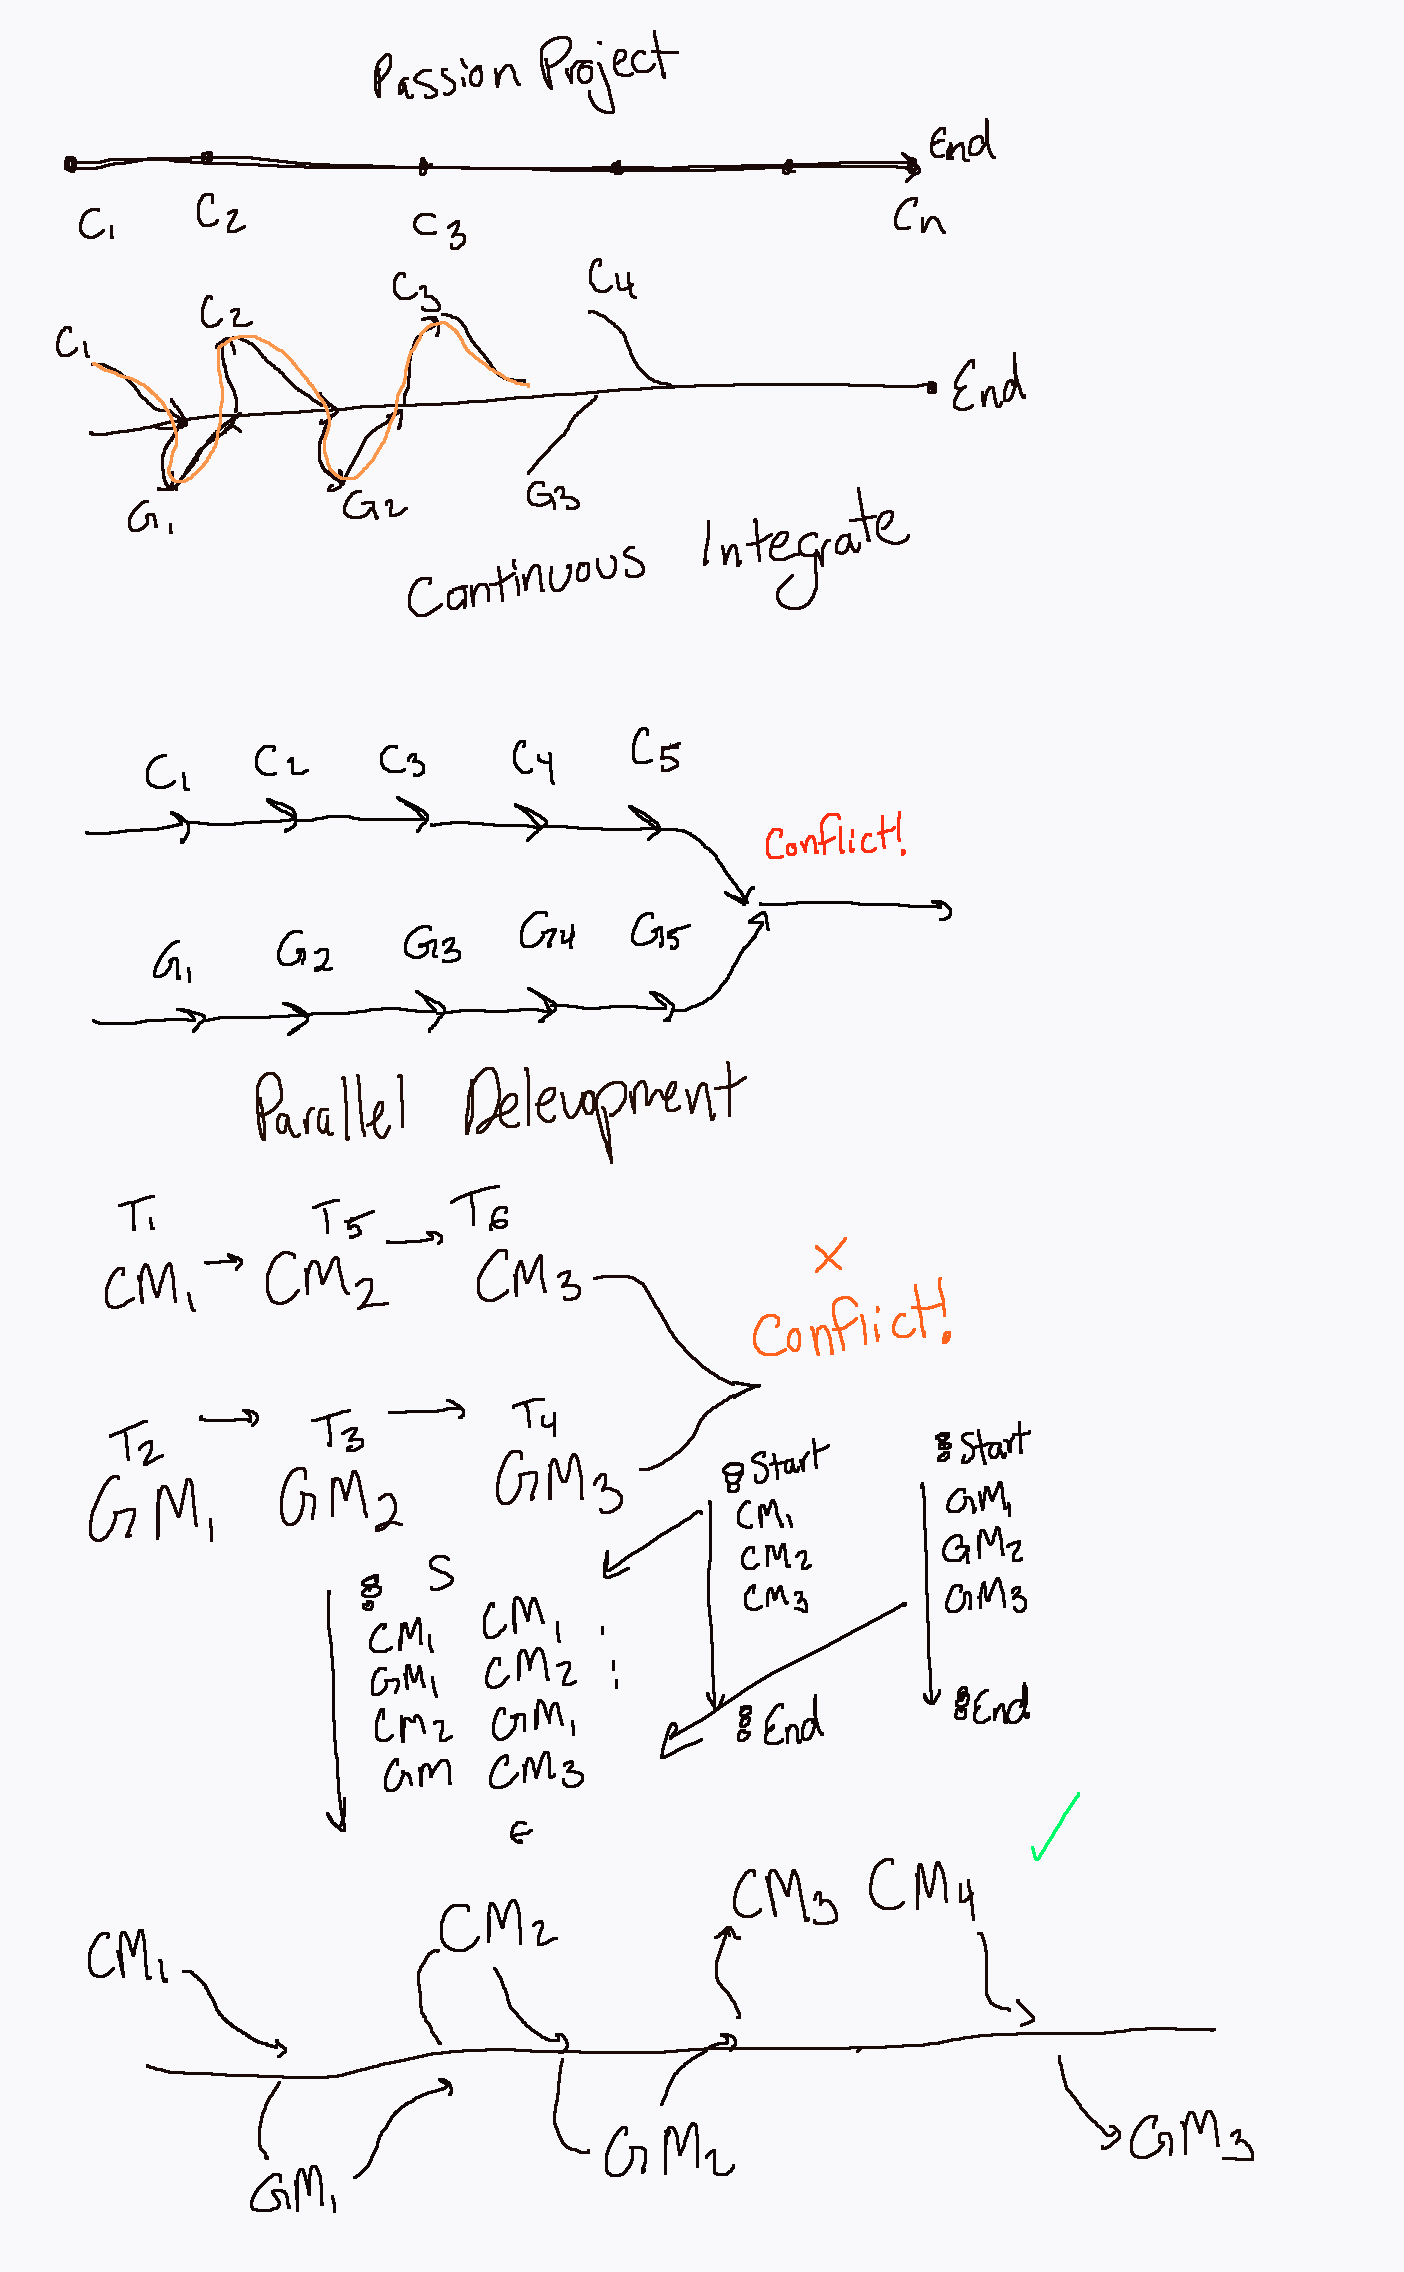 Passion Project
End
C1 C2 C3 Cn
C1 C2 C3 C4
End
G1 G2 G3
Continuous Integrate
C1 C2 C3 C4 C5
Conflict!
G1 G2 G3 G4 G5
Parallel Delevopment
T1 T5 T6
CM1 CM2 CM3
X
Conflict!
T2 T3 T4
GM1 GM2 GM3
Start
CM1
CM2
CM3
End
Start
GM1
GM2
GM3
End
S
CM1 CM1
GM1 CM2
CM2 GM1
GM CM3
E
CM1 CM2 CM3 CM4
GM1 GM2 GM3